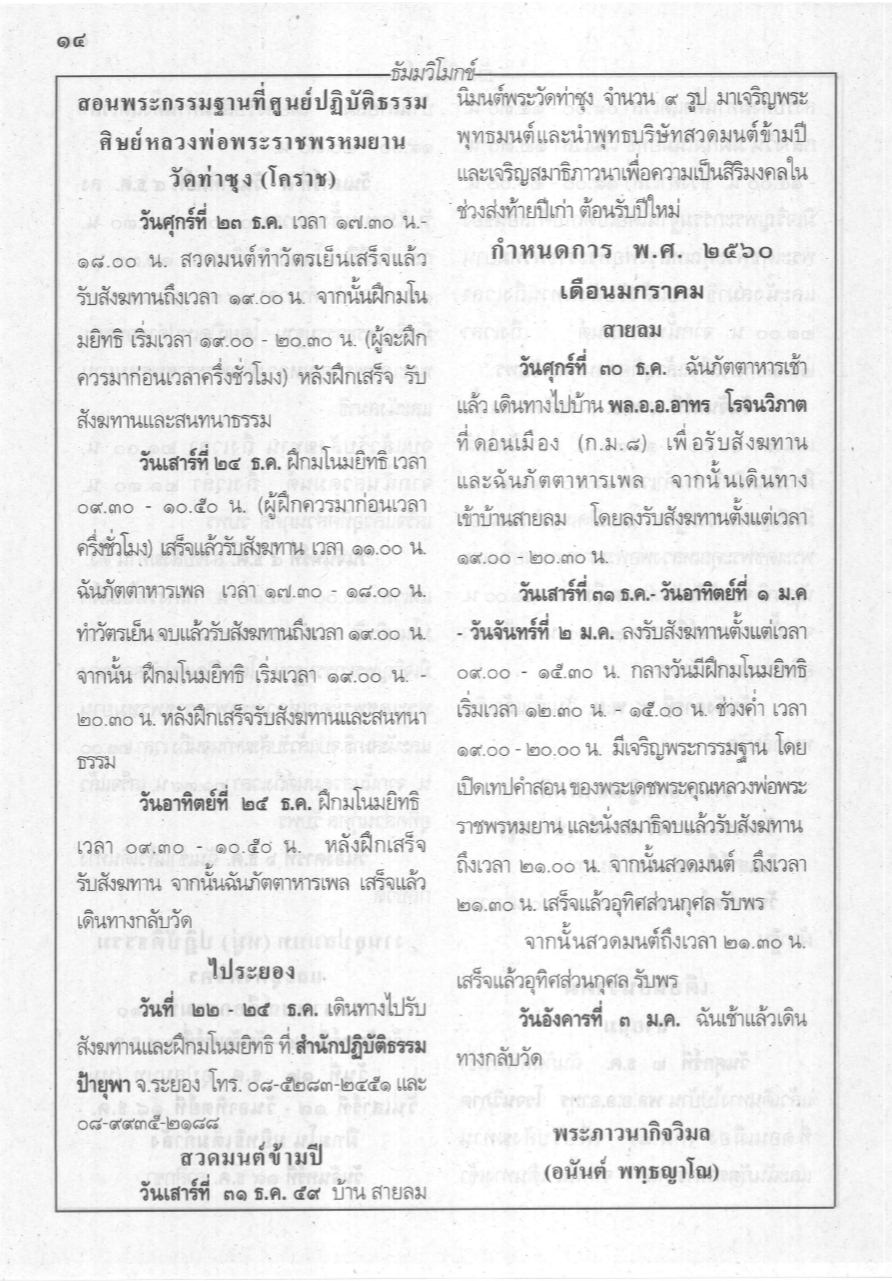 ๑๔
ธัมมวิโมกข์
สอนพระกรรมฐานที่ศูนย์ปฏิบัติธรรม
ศิษย์หลวงพ่อพระราชพรหมยาน
วัดท่าซุง (โคราช)
วันศุกร์ที่ ๒๓ ธ.ค. เวลา ๑๗.๓๐ น.-
๑๘.๐๐ น. สวดมนต์ทำวัตรเย็นเสร็จแล้ว
รับสังฆทานถึงเวลา ๑๙.๐๐ น. จากนั้นฝึกมโน
มยิทธิ เริ่มเวลา ๑๙.๐๐ - ๒๐.๓๐ น. (ผู้จะฝึก
ควรมาก่อนเวลาครึ่งชั่วโมง) หลังฝึกเสร็จ รับ
สังฆทานและสนทนาธรรม
วันเสาร์ที่ ๒๔ ธ.ค. ฝึกมโนมยิทธิ เวลา
๐๙.๓๐ - ๑๐.๕๐ น. (ผู้ฝึกควรมาก่อนเวลา
ครึ่งชั่วโมง) เสร็จแล้วรับสังฆทาน เวลา ๑๑.๐๐ น.
ฉันภัตตาหารเพล เวลา ๑๗.๓๐ - ๑๘.๐๐ น.
ทำวัตรเย็น จบแล้วรับสังฆทานถึงเวลา ๑๙.๐๐ น.
จากนั้น ฝึกมโนมยิทธิ เริ่มเวลา ๑๙.๐๐ น. -
๒๐.๓๐ น. หลังฝึกเสร็จรับสังฆทานและสนทนา
ธรรม
วันอาทิตย์ที่ ๒๕ ธ.ค. ฝึกมโนมยิทธิ
เวลา ๐๙.๓๐ - ๑๐.๕๐ น. หลังฝึกเสร็จ
รับสังฆทาน จากนั้นฉันภัตตาหารเพล เสร็จแล้ว
เดินทางกลับวัด
ไประยอง
วันที่ ๒๒ - ๒๕ ธ.ค. เดินทางไปรับ
สังฆทานและฝึกมโนมยิทธิ ที่ สำนักปฏิบัติธรรม
ป้ายุพา จ.ระยอง โทร. ๐๘-๕๒๘๓-๒๔๕๑ และ
๐๘-๙๙๓๕-๒๑๘๘
สวดมนต์ข้ามปี
วันเสาร์ที่ ๓๑ ธ.ค. ๕๙ บ้าน สายลม
นิมนต์พระวัดท่าซุง จำนวน ๙ รูป มาเจริญพระ
พุทธมนต์และนำพุทธบริษัทสวดมนต์ข้ามปี
และเจริญสมาธิภาวนาเพื่อความเป็นสิริมงคลใน
ช่วงส่งท้ายปีเก่า ต้อนรับปีใหม่
กำหนดการ พ.ศ. ๒๕๖๐
เดือนมกราคม
สายลม
วันศุกร์ที่ ๓๐ ธ.ค. ฉันภัตตาหารเช้า
แล้ว เดินทางไปบ้าน พล.อ.อ.อาทร โรจนวิภาต
ที่ดอนเมือง (ก.ม.๘) เพื่อรับสังฆทาน
และฉันภัตตาหารเพล จากนั้นเดินทาง
เข้าบ้านสายลม โดยลงรับสังฆทานตั้งแต่เวลา
๑๙.๐๐ - ๒๐.๓๐ น.
วันเสาร์ที่ ๓๑ ธ.ค.- วันอาทิตย์ที่ ๑ ม.ค
- วันจันทร์ที่ ๒ ม.ค. ลงรับสังฆทานตั้งแต่เวลา
๐๙.๐๐ - ๑๕.๓๐ น. กลางวันมีฝึกมโนมยิทธิ
เริ่มเวลา ๑๒.๓๐ น. - ๑๕.๐๐ น. ช่วงค่ำ เวลา
๑๙.๐๐ - ๒๐.๐๐ น. มีเจริญพระกรรมฐาน โดย
เปิดเทปคำสอน ของพระเดชพระคุณหลวงพ่อพระ
ราชพรหมยาน และนั่งสมาธิจบแล้วรับสังฆทาน
ถึงเวลา ๒๑.๐๐ น. จากนั้นสวดมนต์ ถึงเวลา
๒๑.๓๐ น. เสร็จแล้วอุทิศส่วนกุศล รับพร
จากนั้นสวดมนต์ถึงเวลา ๒๑.๓๐ น.
เสร็จแล้วอุทิศส่วนกุศล รับพร
วันอังคารที่ ๓ ม.ค. ฉันเช้าแล้วเดิน
ทางกลับวัด
พระภาวนากิจวิมล
(อนันต์ พทฺธญาโณ)